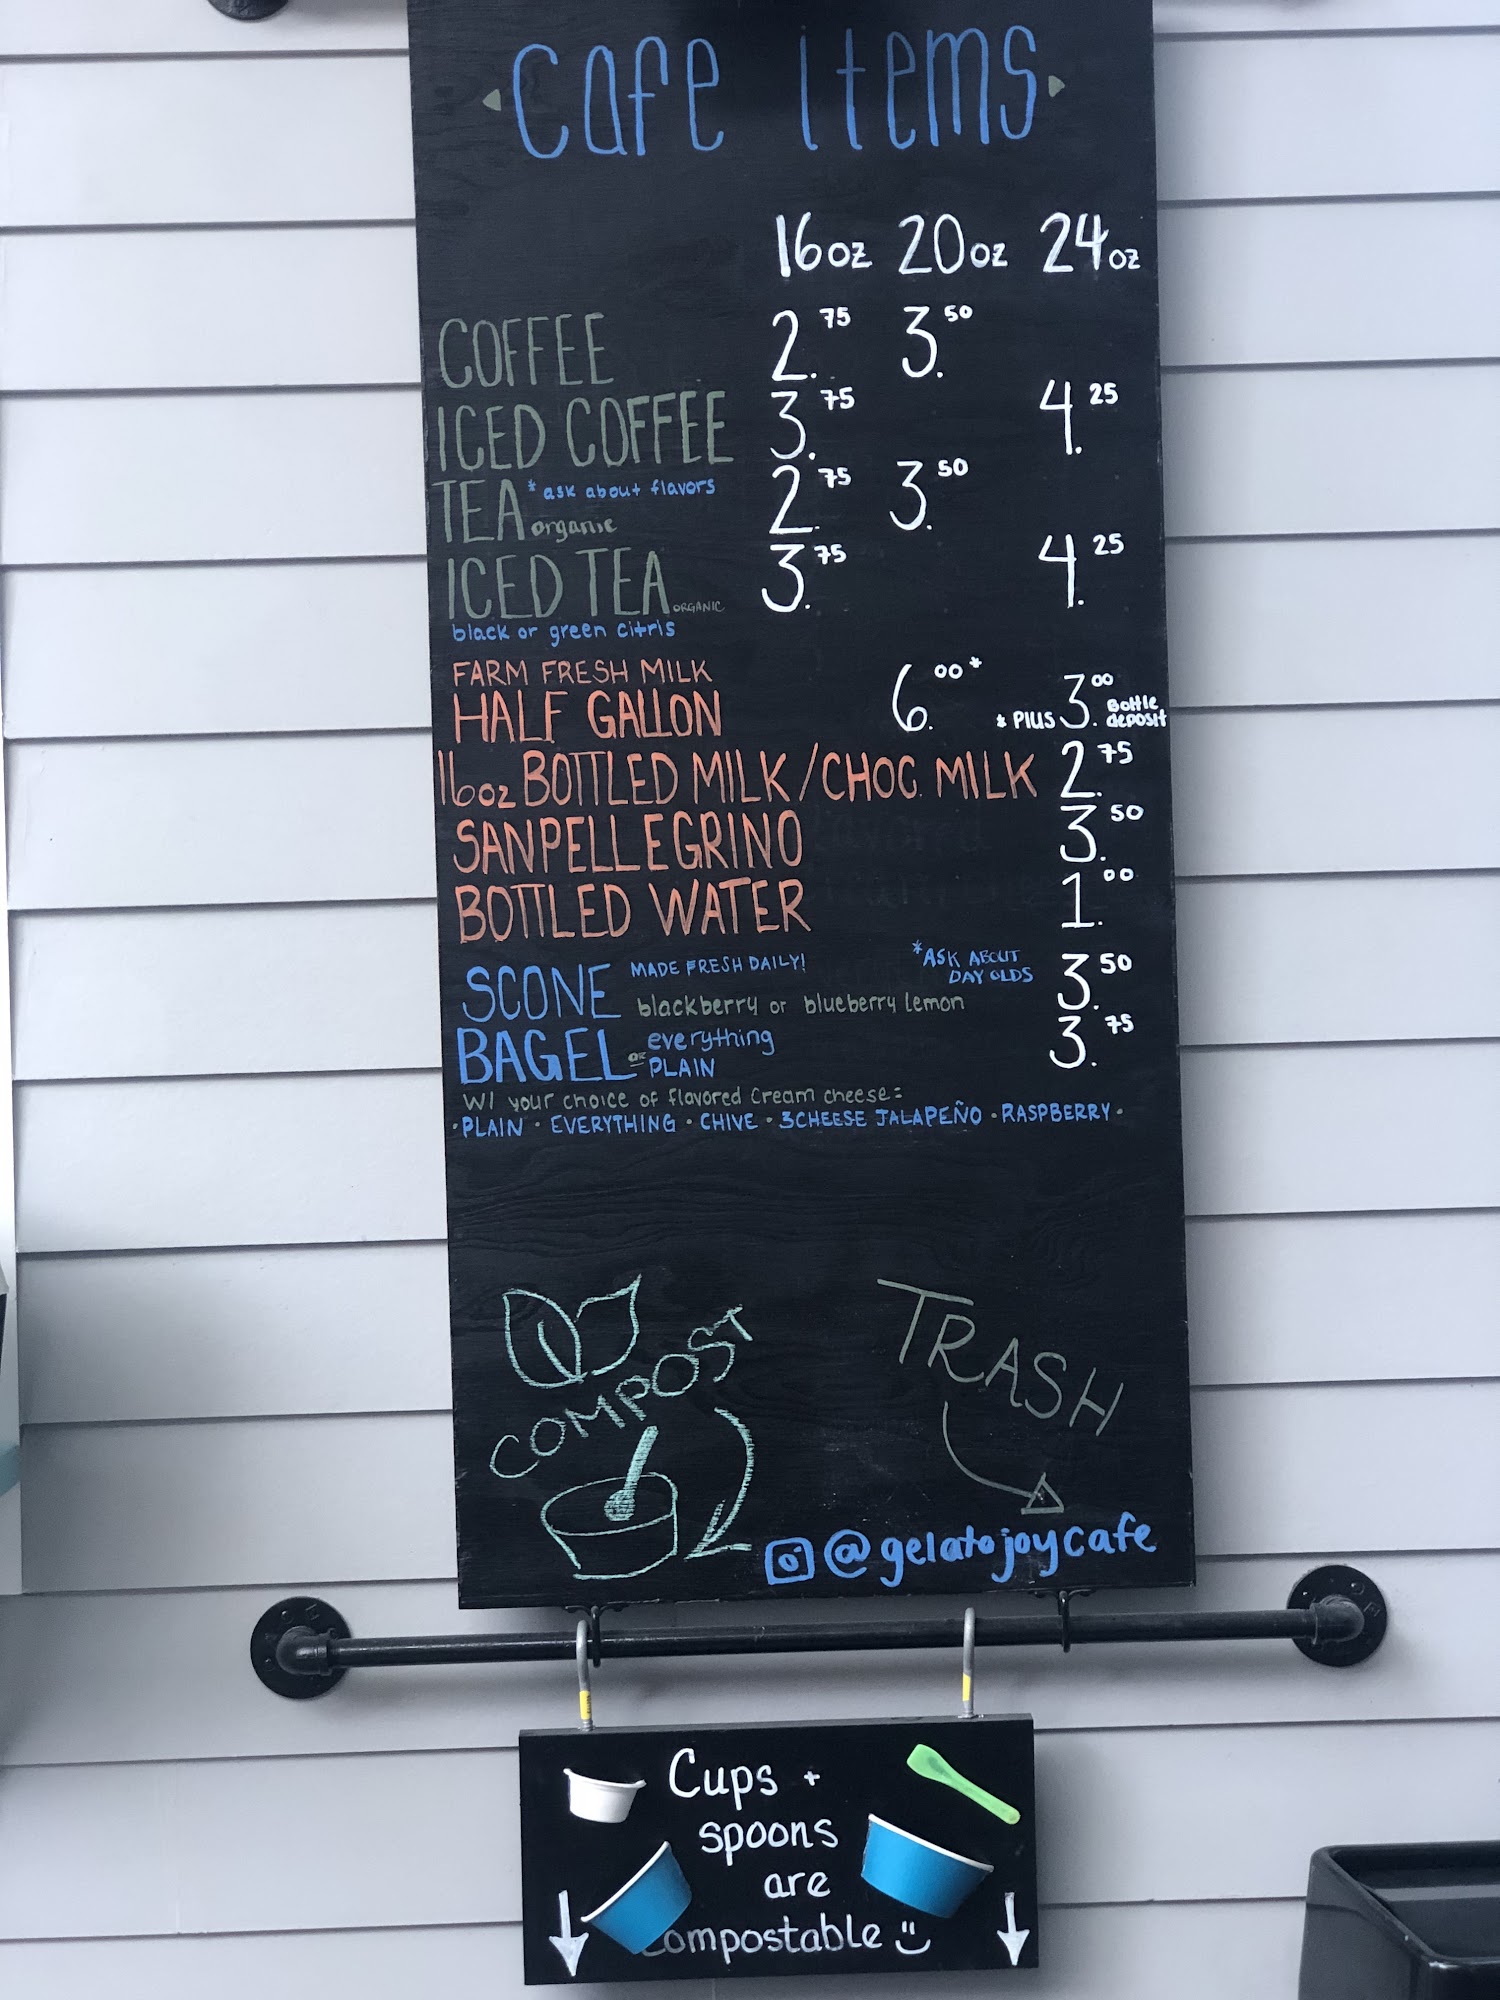 Cafe items
16oz 20oz 24oz
COFFEE 2.75 3.50
ICED COFFEE 3.75 4.25
TEA *ask about flavors organic 2.75 3.50
ICED TEA ORGANIC 3.75 4.25
black or green citris
FARM FRESH MILK
HALF GALLON 6.00* * Plus 3.00 Bottle deposit
16oz BOTTLED MILK/CHOC. MILK 2.75
SANPELLEGRINO 3.50
BOTTLED WATER 1.00
SCONE MADE FRESH DAILY! *ASK ABOUT DAY OLDS 3.50
blackberry or blueberry lemon
BAGEL everything or PLAIN 3.75
W/ your choice of flavored Cream cheese:
·PLAIN · EVERYTHING · CHIVE · 3CHEESE JALAPEÑO · RASPBERRY·
COMPOST
TRASH
@gelatojoycafe
Cups +
spoons
are
compostable